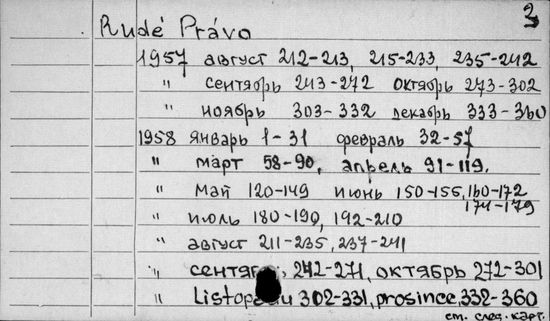 3
Rudé Právo
1957 август 212-213, 215-233, 235-242
" сентябрь 243-272 октябрь 273-302
" ноябрь 303-332 декабрь 333-360
1958 январь 1-31 февраль 32-57
" март 58-90, апрель 91-119.
" май 120-149 июнь 150-155, 160-172
174-179
" июль 180-190, 192-210
" август 211-235, 237-241
" 242-271, октябрь 272-301
" 302-331, prosince, 332-360
см. след. карт.